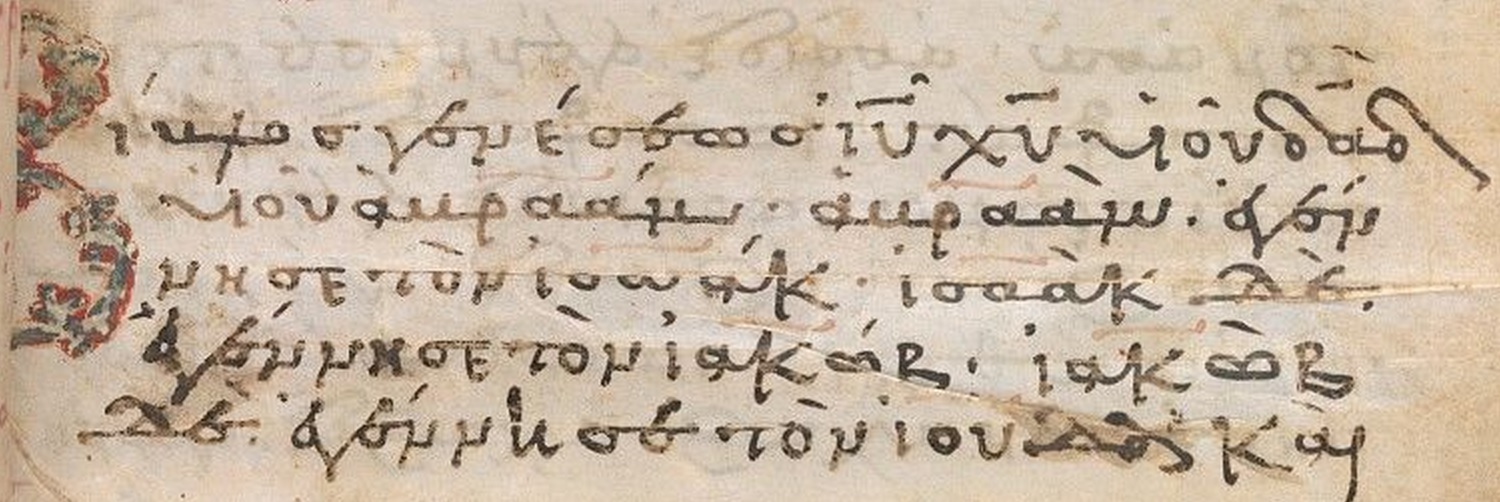 Βίβλος γενέσεως ἰῡ χῡ υἱοῦ δαδ
υἱοῦ ἀβραάμ· ἀβραὰμ· ἐγέν
νησε τὸν ἰσαάκ· ἰσαὰκ δὲ
ἐγέννησε τὸν ἰακώβ· ἰακὼβ
δὲ ἐγέννησε τὸν ἰούδαν καὶ